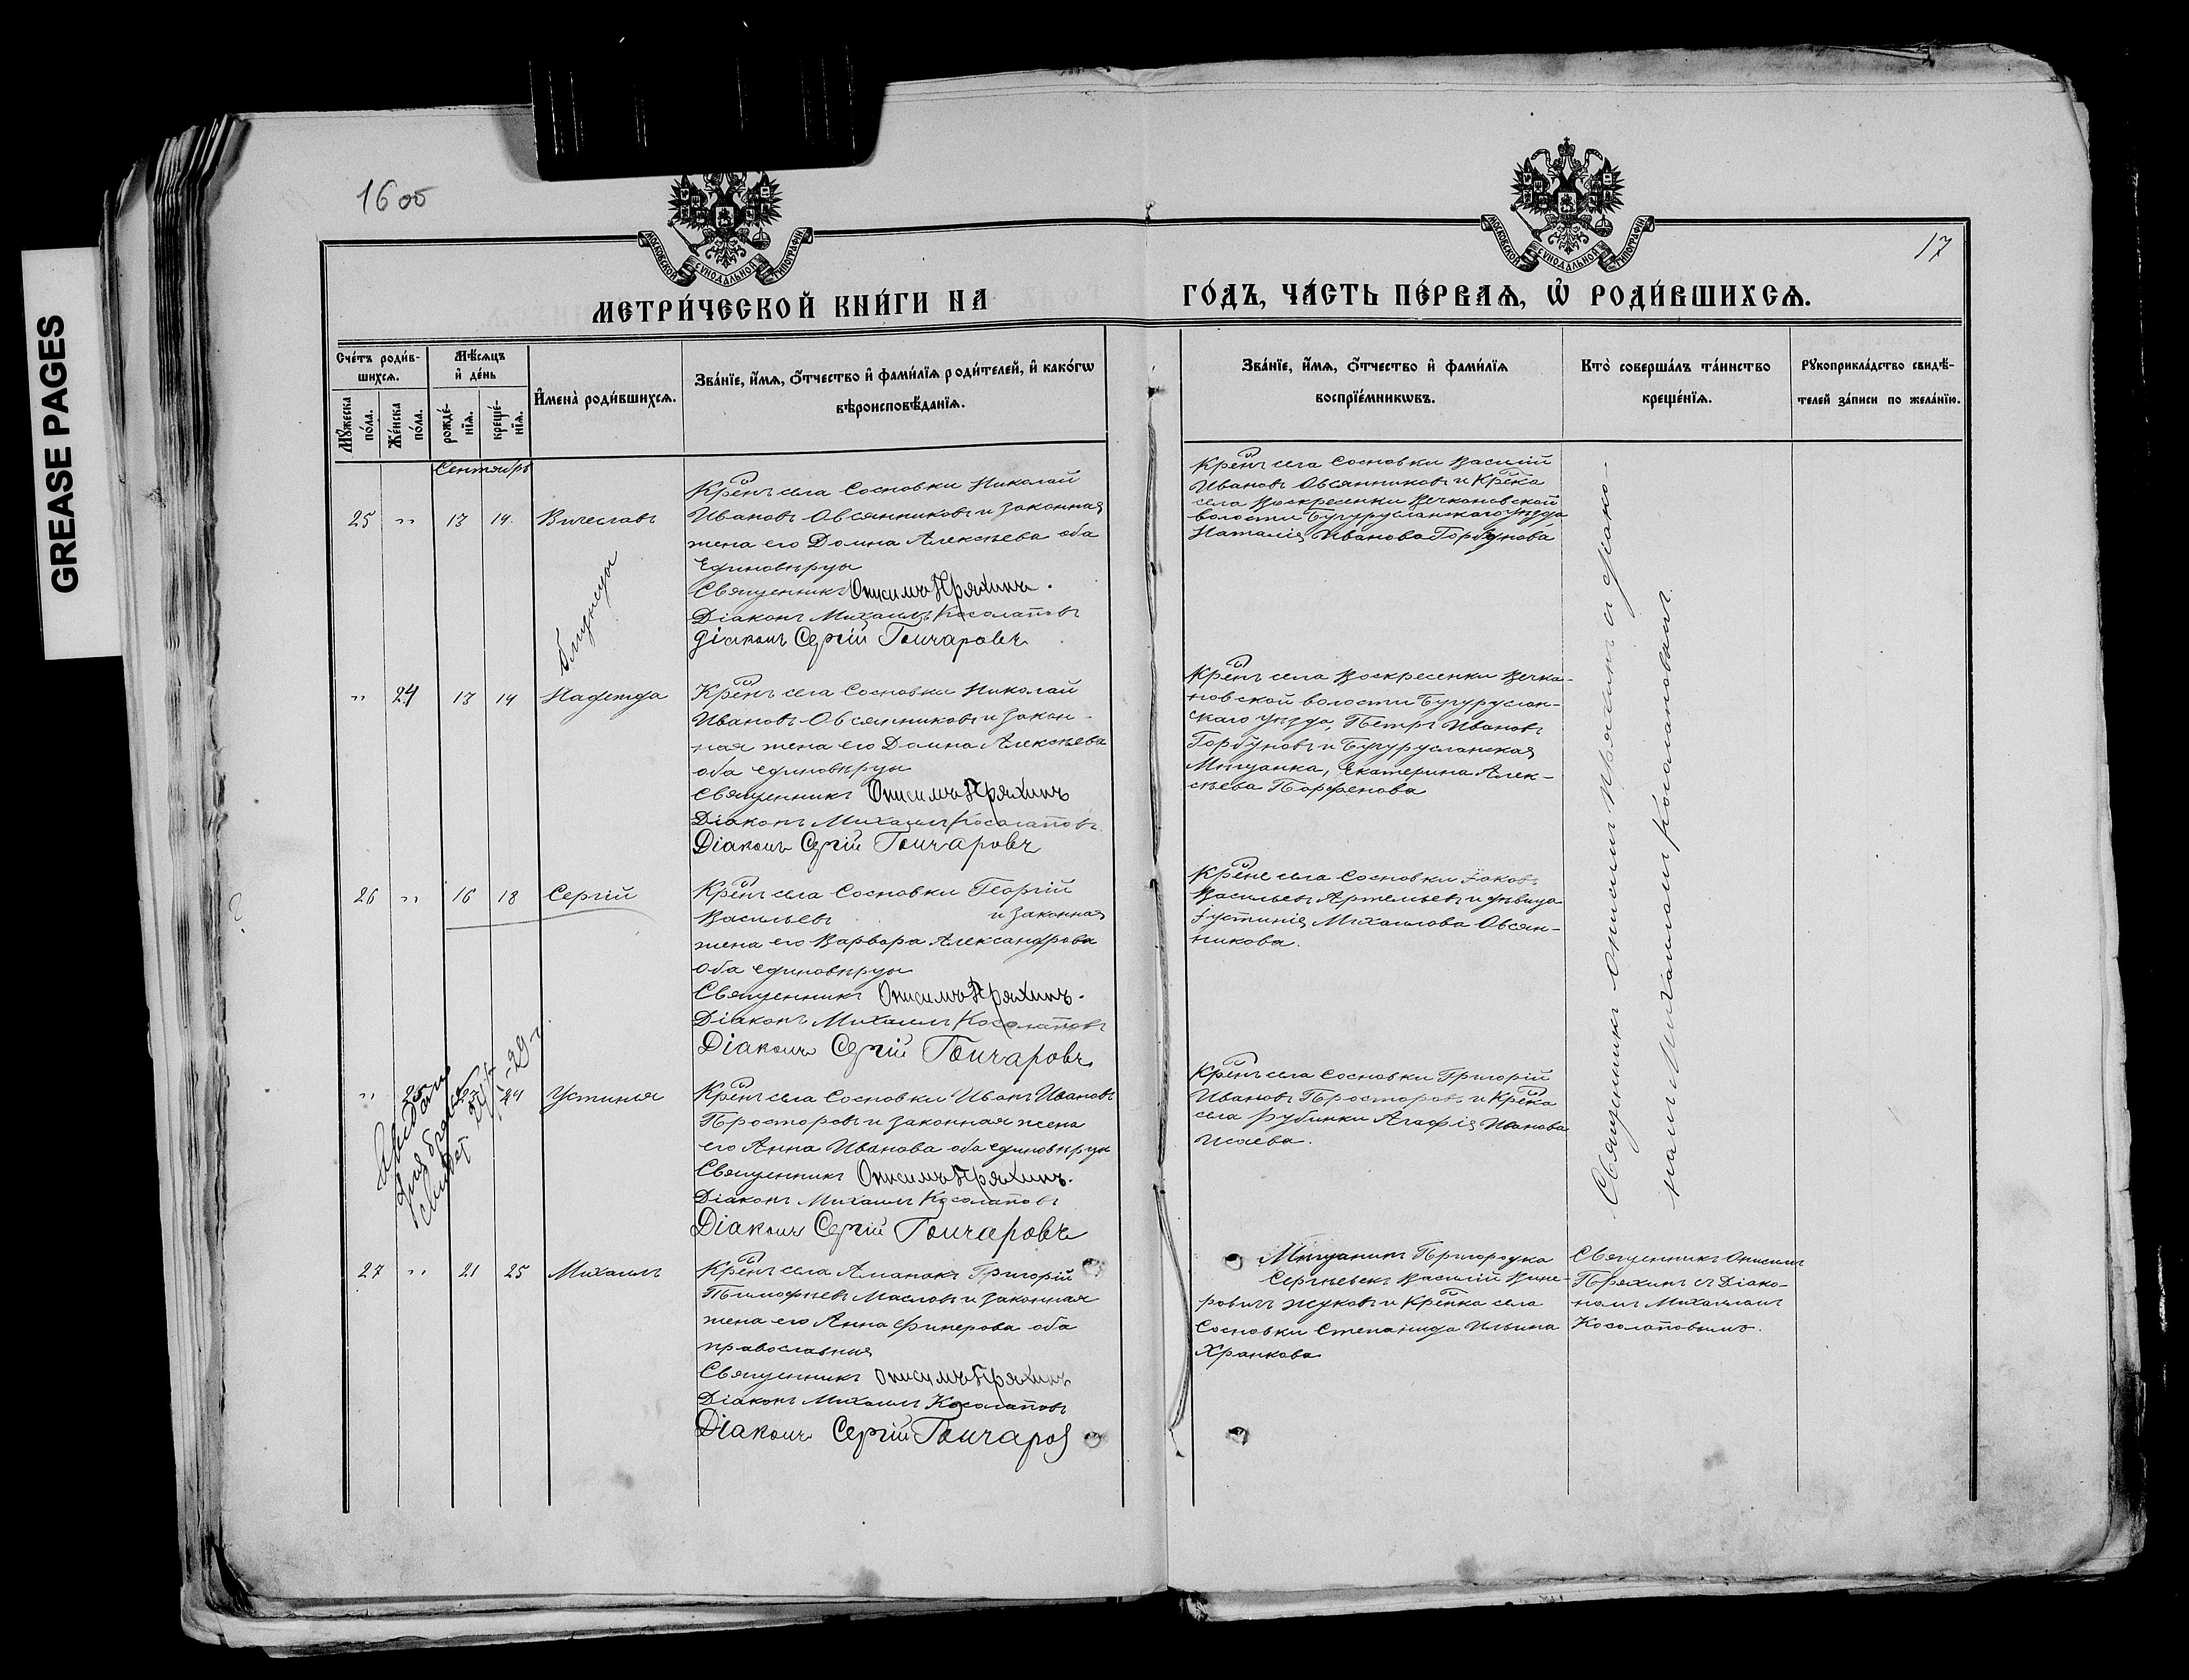 GREASE PAGES
1600
17
МОСКОВСКОЙ СѴНОДАЛЬНОЙ ТИПОГРАФІИ
МОСКОВСКОЙ СѴНОДАЛЬНОЙ ТИПОГРАФІИ
МЕТРИ́ЧЕСКОЙ КНИ́ГИ НА
ГО́ДЪ, ЧА́СТЬ ПЕ́РВАѦ, Ѡ҆ РОДИ́ВШИХСѦ.
Сче́тъ роди́в-
шихсѧ.
Мꙋ́жеска по́ла.
Же́нска по́ла.
Мѣ́сѧцъ
и҆ де́нь
рожде́-
нїѧ.
креще́-
нїѧ.
И҆мена̀ роди́вшихсѧ.
Зва́нїе, и҆́мѧ, ѻ҆́тчество и҆ фами́лїѧ роди́телей, и҆ како́гѡ
вѣроисповѣ́данїѧ.
Зва́нїе, и҆́мѧ, ѻ҆́тчество и҆ фами́лїѧ
воспрїе́мникѡвъ.
Кто̀ соверша́лъ та́инство
креще́нїѧ.
Рꙋкоприкла́дство свидѣ́-
телей за́писи по жела́нїю.
Сентябрь
25 " 13 14. Вячеславъ
Кренъ села Сосновки Николай
Ивановъ Овсянниковъ и законная
жена его Домна Алексѣева оба
Единовѣрцы
Священникъ Онисимъ Пряхинъ.
Діаконъ Михаилъ Косолаповъ
Діаконъ Сергій Гончаровъ
Кренъ села Сосновки Василій
Ивановъ Овсянниковъ и Крека
села Воскресенки Вечкановской
волости Бугурусланскаго уѣзда
Наталія Иванова Горбунова
близнецы
" 24 13 14 Надежда
Кренъ села Сосновки Николай
Ивановъ Овсянниковъ и закон-
ная жена его Домна Алексѣева
оба единовѣрцы
Священникъ Онисимъ Пряхинъ
Діаконъ Михаилъ Косолаповъ
Діаконъ Сергій Гончаровъ
Кренъ села Воскресенки Вечка-
новской волости Бугуруслан-
скаго уѣзда, Петръ Ивановъ
Горбуновъ и Бугурусланская
Мѣщанка, Екатерина Алек-
сѣева Парфенова
26 " 16 18 Сергій
Кренъ села Сосновки Георгій
Васильевъ и законная
жена его Варвара Александрова
оба единовѣрцы
Священникъ Онисимъ Пряхинъ.
Діаконъ Михаилъ Косолаповъ
Діаконъ Сергій Гончаровъ
Крене села Сосновки Іаковъ
Васильевъ Артемьевъ и дѣвица
Іустинія Михаилова Овсян-
никова.
" 25 23 24 Устинья
Кренъ села Сосновки Иванъ Ивановъ
Просторовъ и законная жена
его Анна Иванова оба единовѣрцы
Священникъ Онисимъ Пряхинъ.
Діаконъ Михаилъ Косолаповъ
Діаконъ Сергій Гончаровъ
Кренъ села Сосновки Григорій
Ивановъ Просторовъ и Крека
села Рубинки Агафія Иванова
Исаева.
27 " 21 25 Михаилъ
Кренъ села Аманакъ Григорій
Тимофѣевъ Масловъ и законная
жена его Анна Финерова оба
православныя
Священникъ Онисимъ Пряхинъ
Діаконъ Михаилъ Косолаповъ
Діаконъ Сергій Гончаров
Мѣщанинъ Пригородка
Сергіевскъ Василій Вине-
ровичъ Жуковъ и Кренка села
Сосновки Степанида Ильина
Храмкова
Священникъ Онисимъ
Пряхинъ съ Діако-
номъ Михаиломъ
Косолаповымъ.
Священникъ Онисимъ Пряхинъ съ Діако-
номъ Михаиломъ Косолаповымъ.